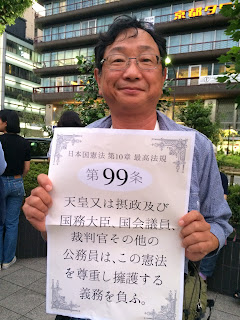 日本国憲法 第10章 最高法規
第99条
天皇又は摂政及び
国務大臣、国会議員、
裁判官その他の
公務員は、この憲法
を尊重し擁護する
義務を負ふ。